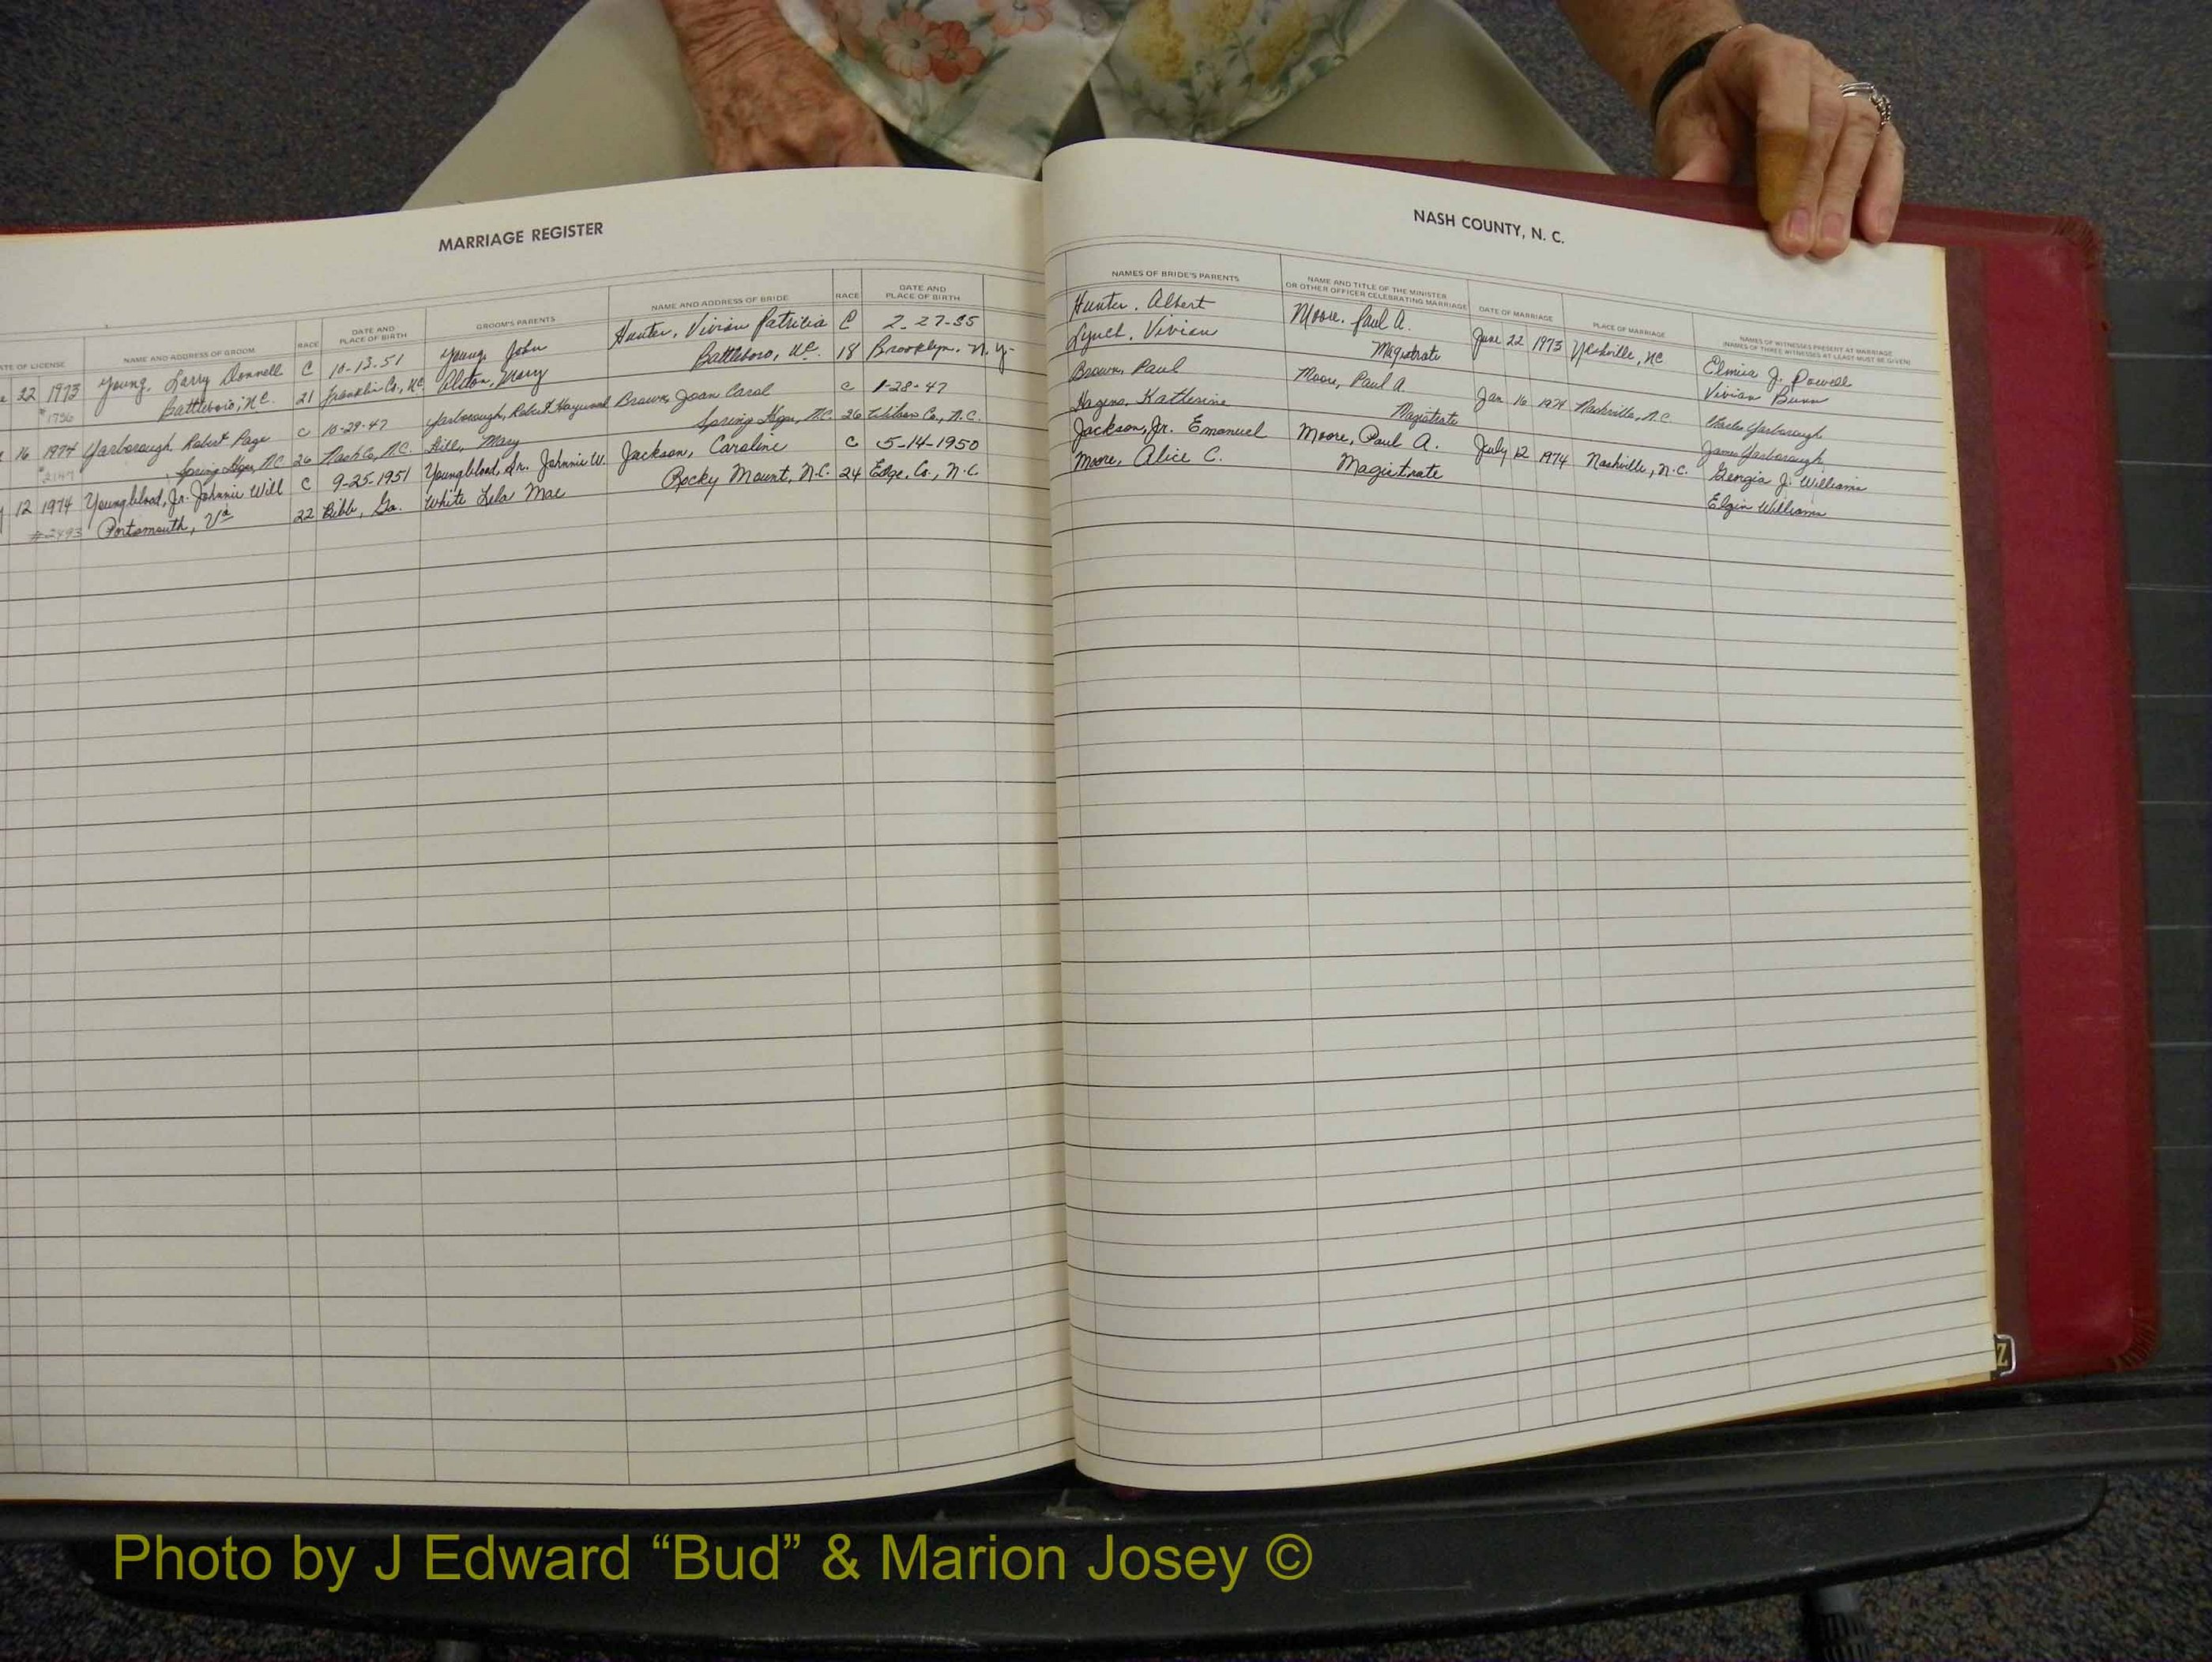 MARRIAGE REGISTER
TE OF LICENSE NAME AND ADDRESS OF GROOM RACE DATE AND PLACE OF BIRTH GROOM'S PARENTS NAME AND ADDRESS OF BRIDE RACE DATE AND PLACE OF BIRTH
22 1973 Young, Larry Donnell C 10-13-51 Young, John Hunter, Vivian Patricia C 2-27-55
Battleboro, N.C. 21 Franklin Co., N.C. Alston, Mary Battleboro, N.C. 18 Brooklyn, N.Y.
16 1974 Yarborough, Robert Page C 10-29-47 Yarborough, Robert Haywood Brown, Joan Carol C 1-28-47
Spring Hope, N.C. 26 Nash Co, N.C. Mary Spring Hope, N.C. 26 Wilson Co., N.C.
12 1974 Youngblood, Jr. Johnnie Will C 9-25-1951 Youngblood, Sr. Johnnie W. Jackson, Caroline C 5-14-1950
#2493 Portsmouth, Va 22 Bibb, Ga. White Lula Mae Rocky Mount, N.C. 24 Edge. Co., N.C.
NASH COUNTY, N. C.
NAMES OF BRIDE'S PARENTS NAME AND TITLE OF THE MINISTER OR OTHER OFFICER CELEBRATING MARRIAGE DATE OF MARRIAGE PLACE OF MARRIAGE NAMES OF WITNESSES PRESENT AT MARRIAGE (NAMES OF THREE WITNESSES AT LEAST MUST BE GIVEN)
Hunter, Albert Moore, Paul A. June 22 1973 Nashville, NC Elmira J. Powell
Lynch, Vivian Magistrate Vivian Bunn
Brown, Paul Moore, Paul A. Jan 16 1974 Nashville, N.C. Charles Yarborough
Katherine Magistrate James Yarborough
Jackson, Jr. Emanuel Moore, Paul A. July 12 1974 Nashville, N.C. Georgia J. Williams
Moore, Alice C. Magistrate Elgin Williams
Z
Photo by J Edward “Bud” & Marion Josey ©